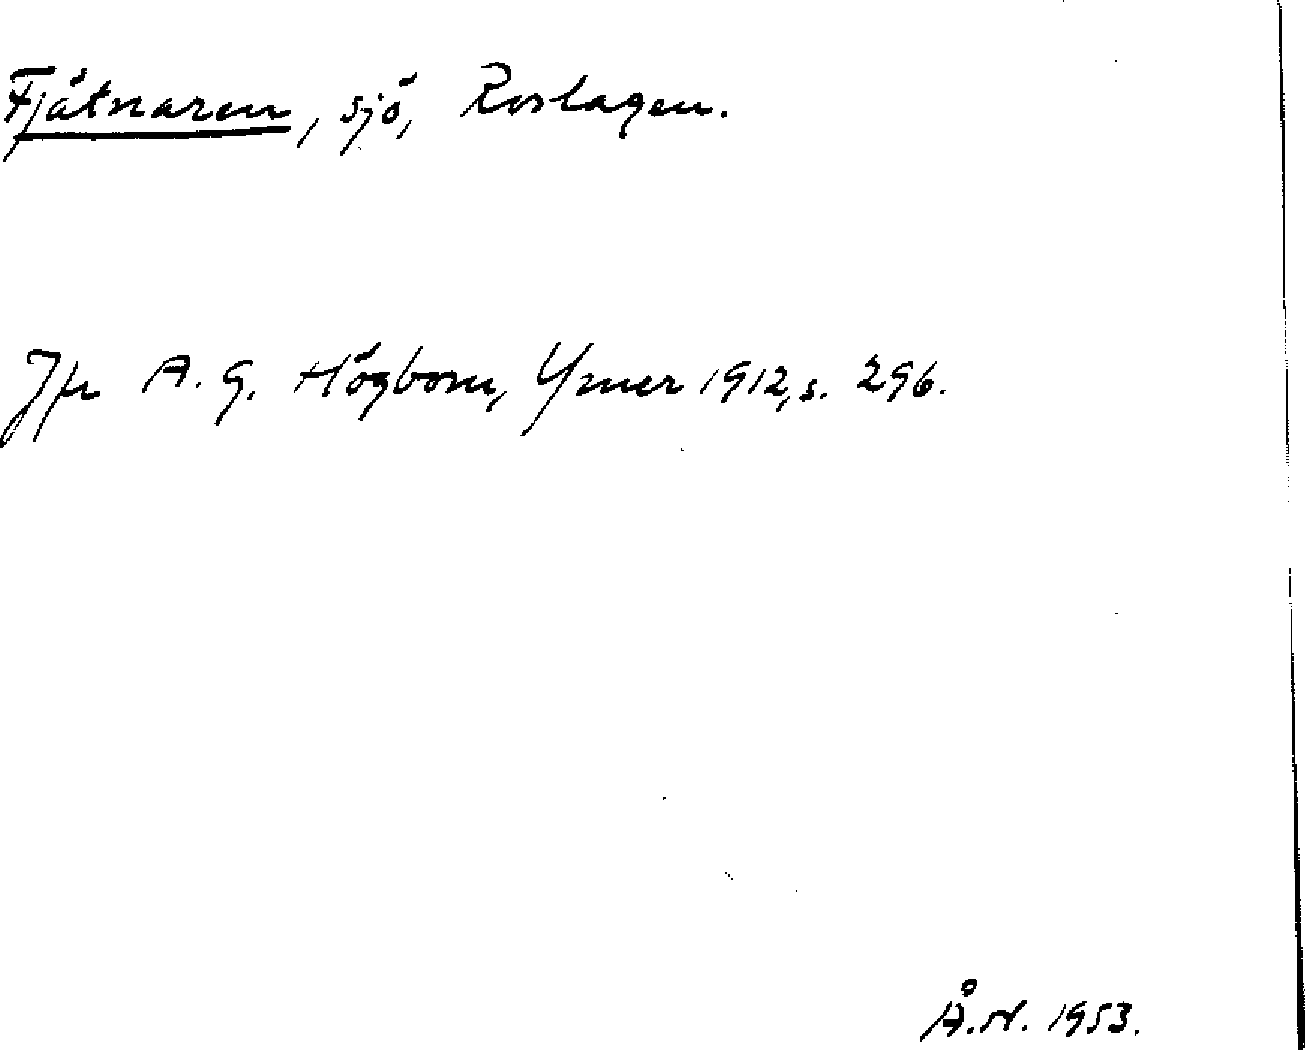 Fjätnaren, sjö, Roslagen.
Jfr A. G. Högbom, Ymer 1912, s. 296.
Å.N. 1953.